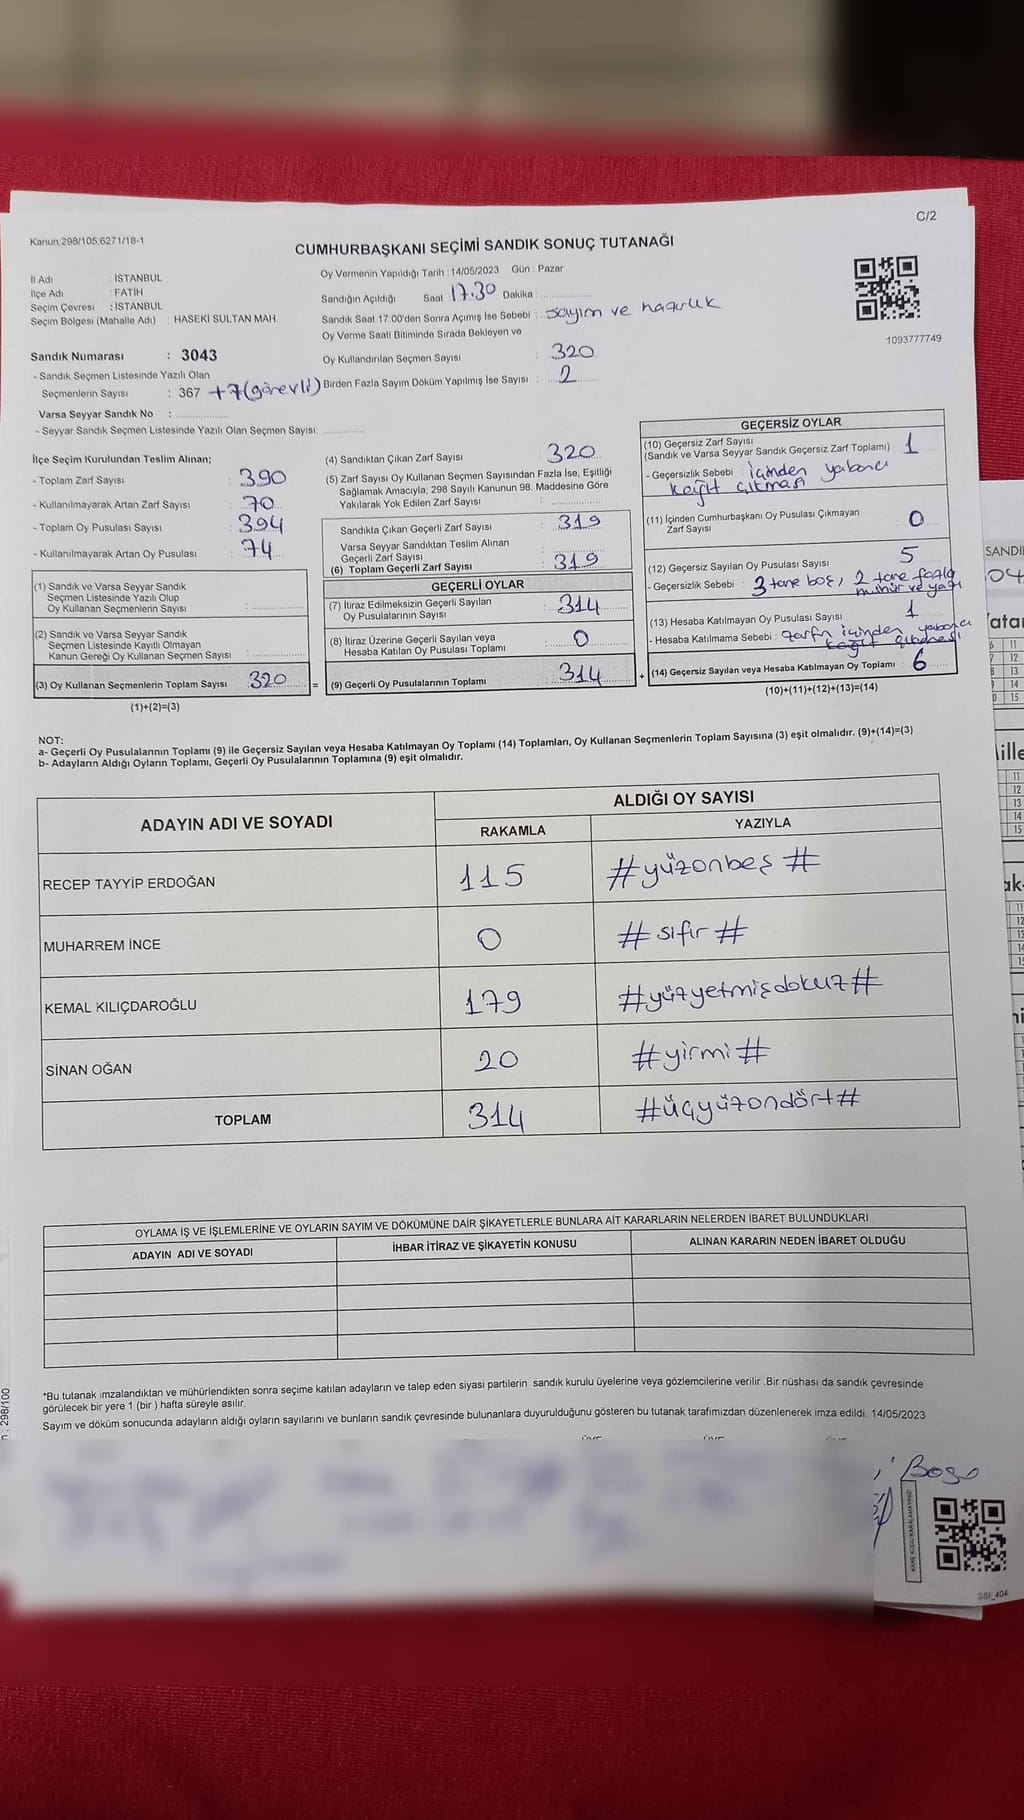 C/2
Kanun:298/105,6271/18-1
CUMHURBAŞKANI SEÇİMİ SANDIK SONUÇ TUTANAĞI
İl Adı : İSTANBUL
İlçe Adı : FATİH
Seçim Çevresi : İSTANBUL
Seçim Bölgesi (Mahalle Adı) : HASEKİ SULTAN MAH.
Oy Vermenin Yapıldığı Tarih : 14/05/2023 Gün : Pazar
Sandığın Açıldığı Saat 17.30 Dakika : ..............
Sandık Saat 17:00'den Sonra Açımış İse Sebebi : sayım ve hazırlık
Oy Verme Saati Bitiminde Sırada Bekleyen ve
Oy Kullandırılan Seçmen Sayısı : 320
Birden Fazla Sayım Döküm Yapılmış İse Sayısı : 2
1093777749
Sandık Numarası : 3043
- Sandık Seçmen Listesinde Yazılı Olan
Seçmenlerin Sayısı : 367 +7(görevli)
Varsa Seyyar Sandık No : ..............
- Seyyar Sandık Seçmen Listesinde Yazılı Olan Seçmen Sayısı: ............
İlçe Seçim Kurulundan Teslim Alınan;
- Toplam Zarf Sayısı : 390
- Kullanılmayarak Artan Zarf Sayısı : 70
- Toplam Oy Pusulası Sayısı : 394
- Kullanılmayarak Artan Oy Pusulası : 74
(1) Sandık ve Varsa Seyyar Sandık
Seçmen Listesinde Yazılı Olup
Oy Kullanan Seçmenlerin Sayısı : ..............
(2) Sandık ve Varsa Seyyar Sandık
Seçmen Listesinde Kayıtlı Olmayan
Kanun Gereği Oy Kullanan Seçmen Sayısı : ..............
(3) Oy Kullanan Seçmenlerin Toplam Sayısı : 320 =
(1)+(2)=(3)
(4) Sandıktan Çıkan Zarf Sayısı : 320
(5) Zarf Sayısı Oy Kullanan Seçmen Sayısından Fazla İse, Eşitliği
Sağlamak Amacıyla; 298 Sayılı Kanunun 98. Maddesine Göre
Yakılarak Yok Edilen Zarf Sayısı : ..............
Sandıkta Çıkan Geçerli Zarf Sayısı : 319
Varsa Seyyar Sandıktan Teslim Alınan
Geçerli Zarf Sayısı : ..............
(6) Toplam Geçerli Zarf Sayısı : 319
GEÇERLİ OYLAR
(7) İtiraz Edilmeksizin Geçerli Sayılan
Oy Pusulalarının Sayısı : 314
(8) İtiraz Üzerine Geçerli Sayılan veya
Hesaba Katılan Oy Pusulası Toplamı : 0
(9) Geçerli Oy Pusulalarının Toplamı : 314 +
GEÇERSİZ OYLAR
(10) Geçersiz Zarf Sayısı
(Sandık ve Varsa Seyyar Sandık Geçersiz Zarf Toplamı) : 1
- Geçersizlik Sebebi : içinden yabancı
kağıt çıkması
(11) İçinden Cumhurbaşkanı Oy Pusulası Çıkmayan
Zarf Sayısı : 0
(12) Geçersiz Sayılan Oy Pusulası Sayısı : 5
- Geçersizlik Sebebi : 3 tane boş, 2 tane fazla
mühür ve yazı
(13) Hesaba Katılmayan Oy Pusulası Sayısı : 1
- Hesaba Katılmama Sebebi : zarfın içinden yabancı
kağıt çıkması
(14) Geçersiz Sayılan veya Hesaba Katılmayan Oy Toplamı : 6
(10)+(11)+(12)+(13)=(14)
NOT:
a- Geçerli Oy Pusulalarının Toplamı (9) ile Geçersiz Sayılan veya Hesaba Katılmayan Oy Toplamı (14) Toplamları, Oy Kullanan Seçmenlerin Toplam Sayısına (3) eşit olmalıdır. (9)+(14)=(3)
b- Adayların Aldığı Oyların Toplamı, Geçerli Oy Pusulalarının Toplamına (9) eşit olmalıdır.
ADAYIN ADI VE SOYADI ALDIĞI OY SAYISI
RAKAMLA YAZIYLA
RECEP TAYYİP ERDOĞAN 115 #yüzonbeş#
MUHARREM İNCE 0 #sıfır#
KEMAL KILIÇDAROĞLU 179 #yüzyetmişdokuz#
SİNAN OĞAN 20 #yirmi#
TOPLAM 314 #üçyüzondört#
OYLAMA İŞ VE İŞLEMLERİNE VE OYLARIN SAYIM VE DÖKÜMÜNE DAİR ŞİKAYETLERLE BUNLARA AİT KARARLARIN NELERDEN İBARET BULUNDUKLARI
ADAYIN ADI VE SOYADI İHBAR İTİRAZ VE ŞİKAYETİN KONUSU ALINAN KARARIN NEDEN İBARET OLDUĞU
*Bu tutanak imzalandıktan ve mühürlendikten sonra seçime katılan adayların ve talep eden siyasi partilerin sandık kurulu üyelerine veya gözlemcilerine verilir .Bir nüshası da sandık çevresinde
görülecek bir yere 1 (bir ) hafta süreyle asılır.
Sayım ve döküm sonucunda adayların aldığı oyların sayılarını ve bunların sandık çevresinde bulunanlara duyurulduğunu gösteren bu tutanak tarafımızdan düzenlenerek imza edildi. 14/05/2023
KARE KODU KARALAMAYINIZ!
SSI_404
298/100
SANDI